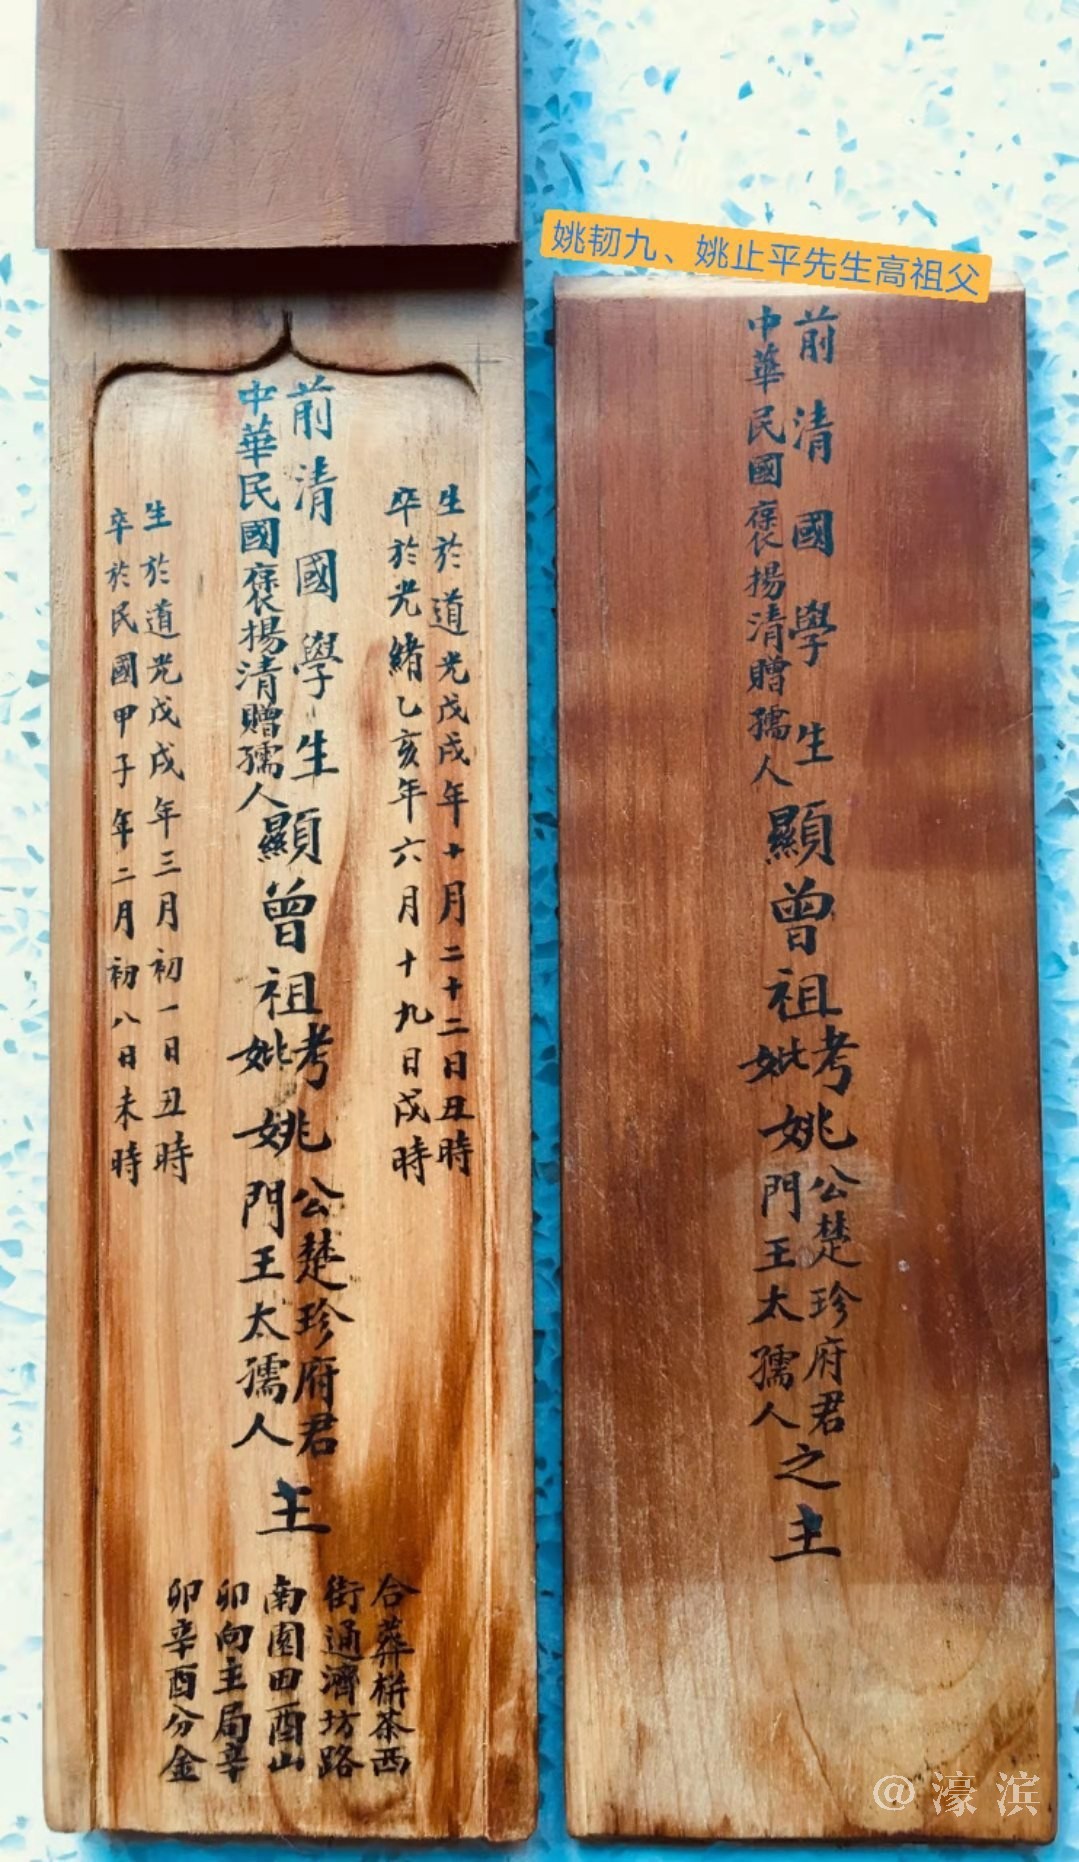 姚韧九、姚止平先生高祖父
生於道光戊戌年十月二十二日丑時
卒於光緒乙亥年六月十九日戌時
前清國學生
中華民國褒揚清贈孺人
顯曾祖
考
妣
姚
公楚珍府君
門王太孺人
主
生於道光戊戌年三月初一日丑時
卒於民國甲子年二月初八日未時
合葬栟茶西
街通濟坊路
南園田酉山
卯向主局辛
卯辛酉分金
前清國學生
中華民國褒揚清贈孺人
顯曾祖
考
妣
姚
公楚珍府君
門王太孺人
之主
@濠滨